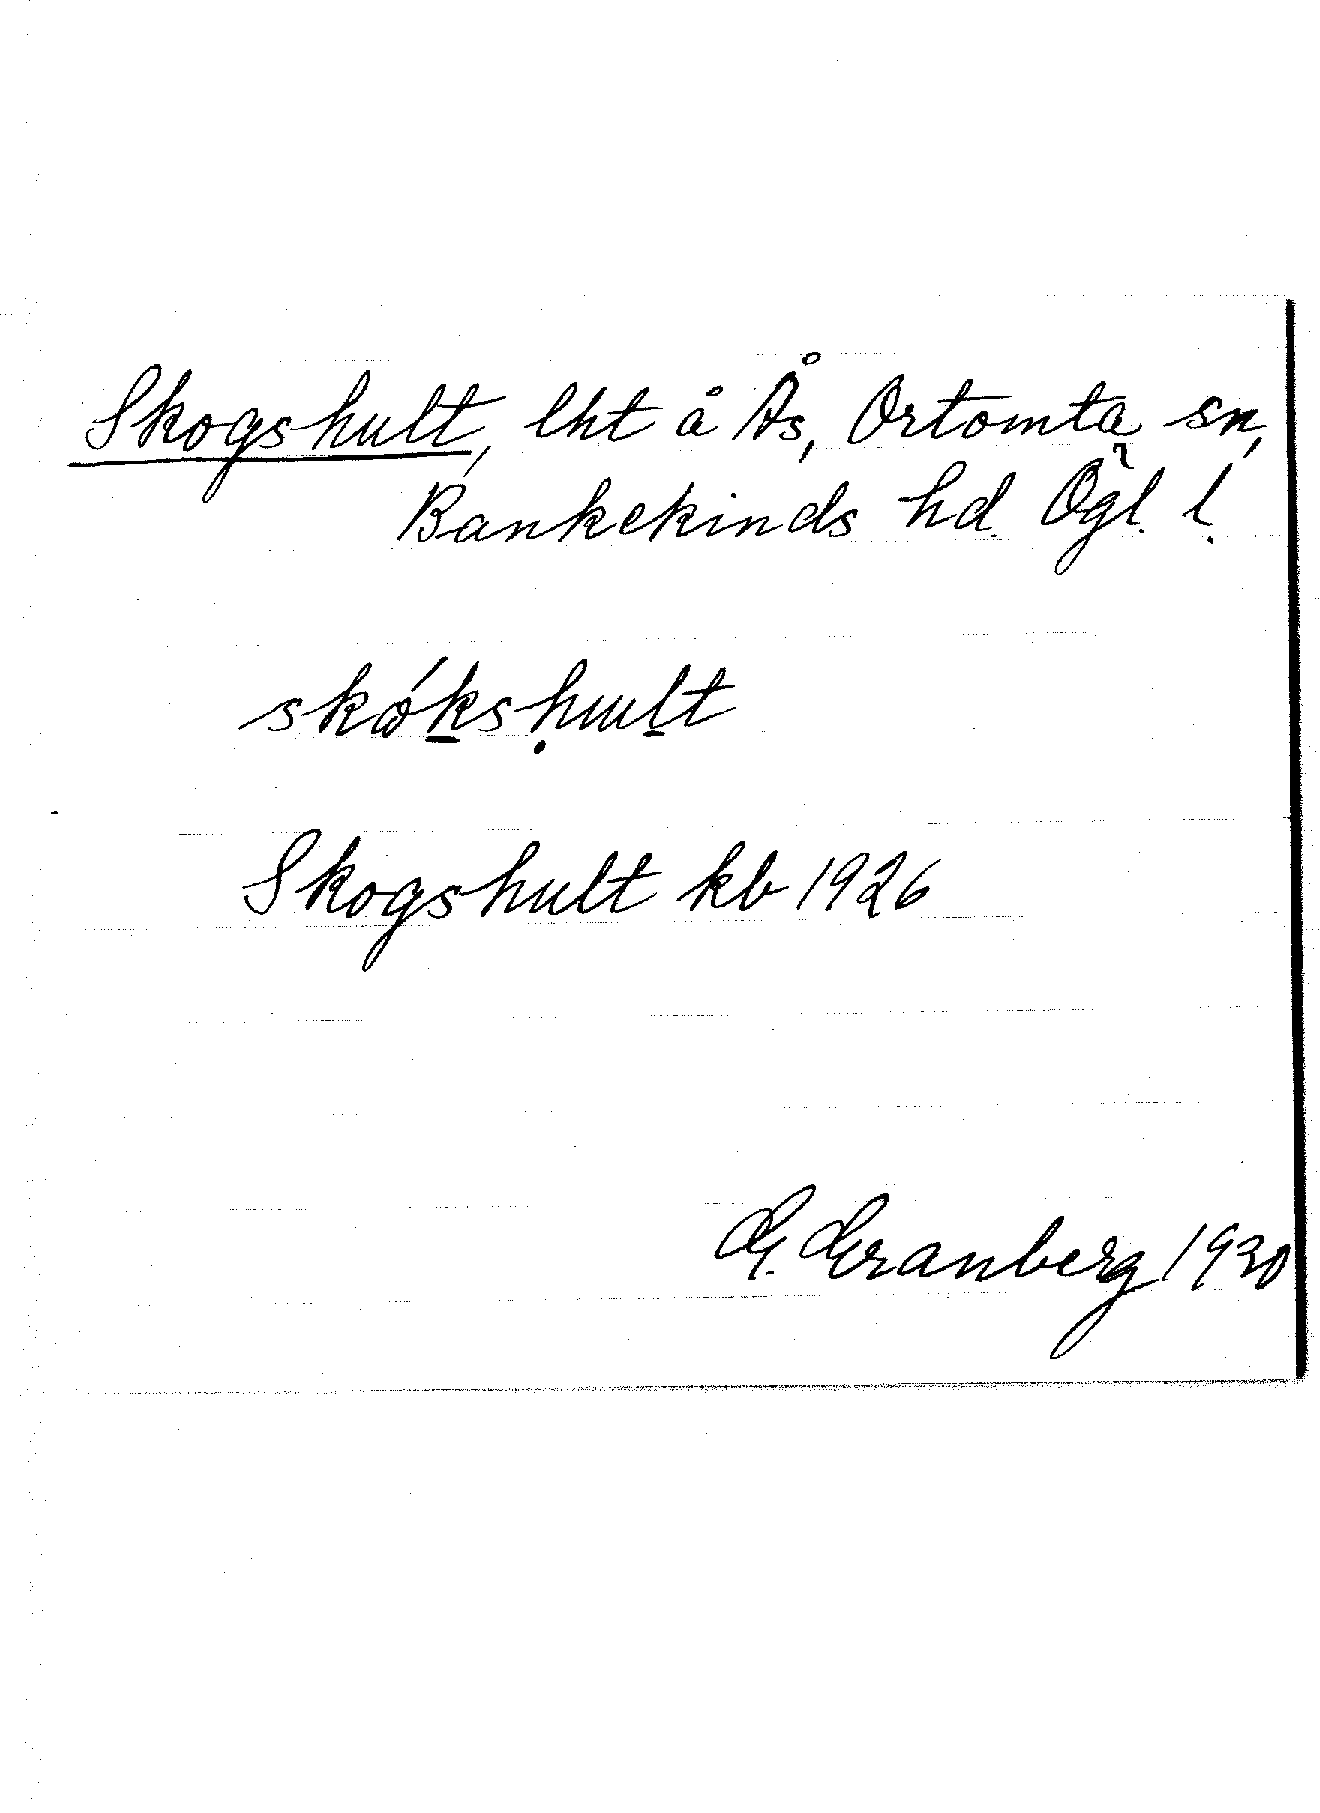 Skogshult, lht å Ås, Ortomta sn,
Bankekinds hd. Ögl. l.
skókshult
Skogshult kb 1926
G. Granberg 1930